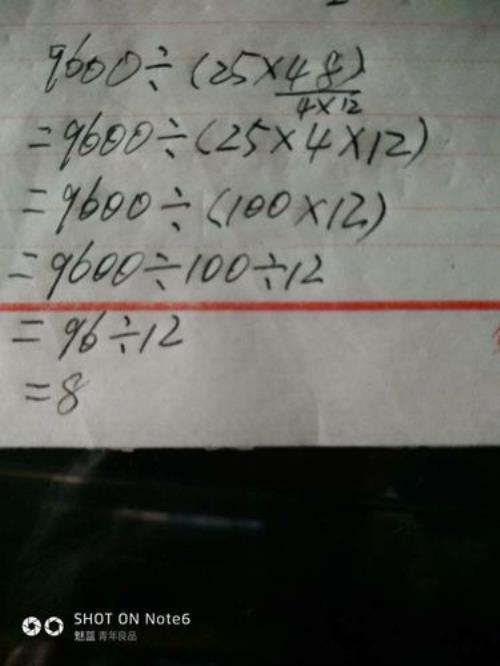 9600÷(25×48)
4×12
=9600÷(25×4×12)
=9600÷(100×12)
=9600÷100÷12
=96÷12
=8
SHOT ON Note6
魅蓝 青年良品